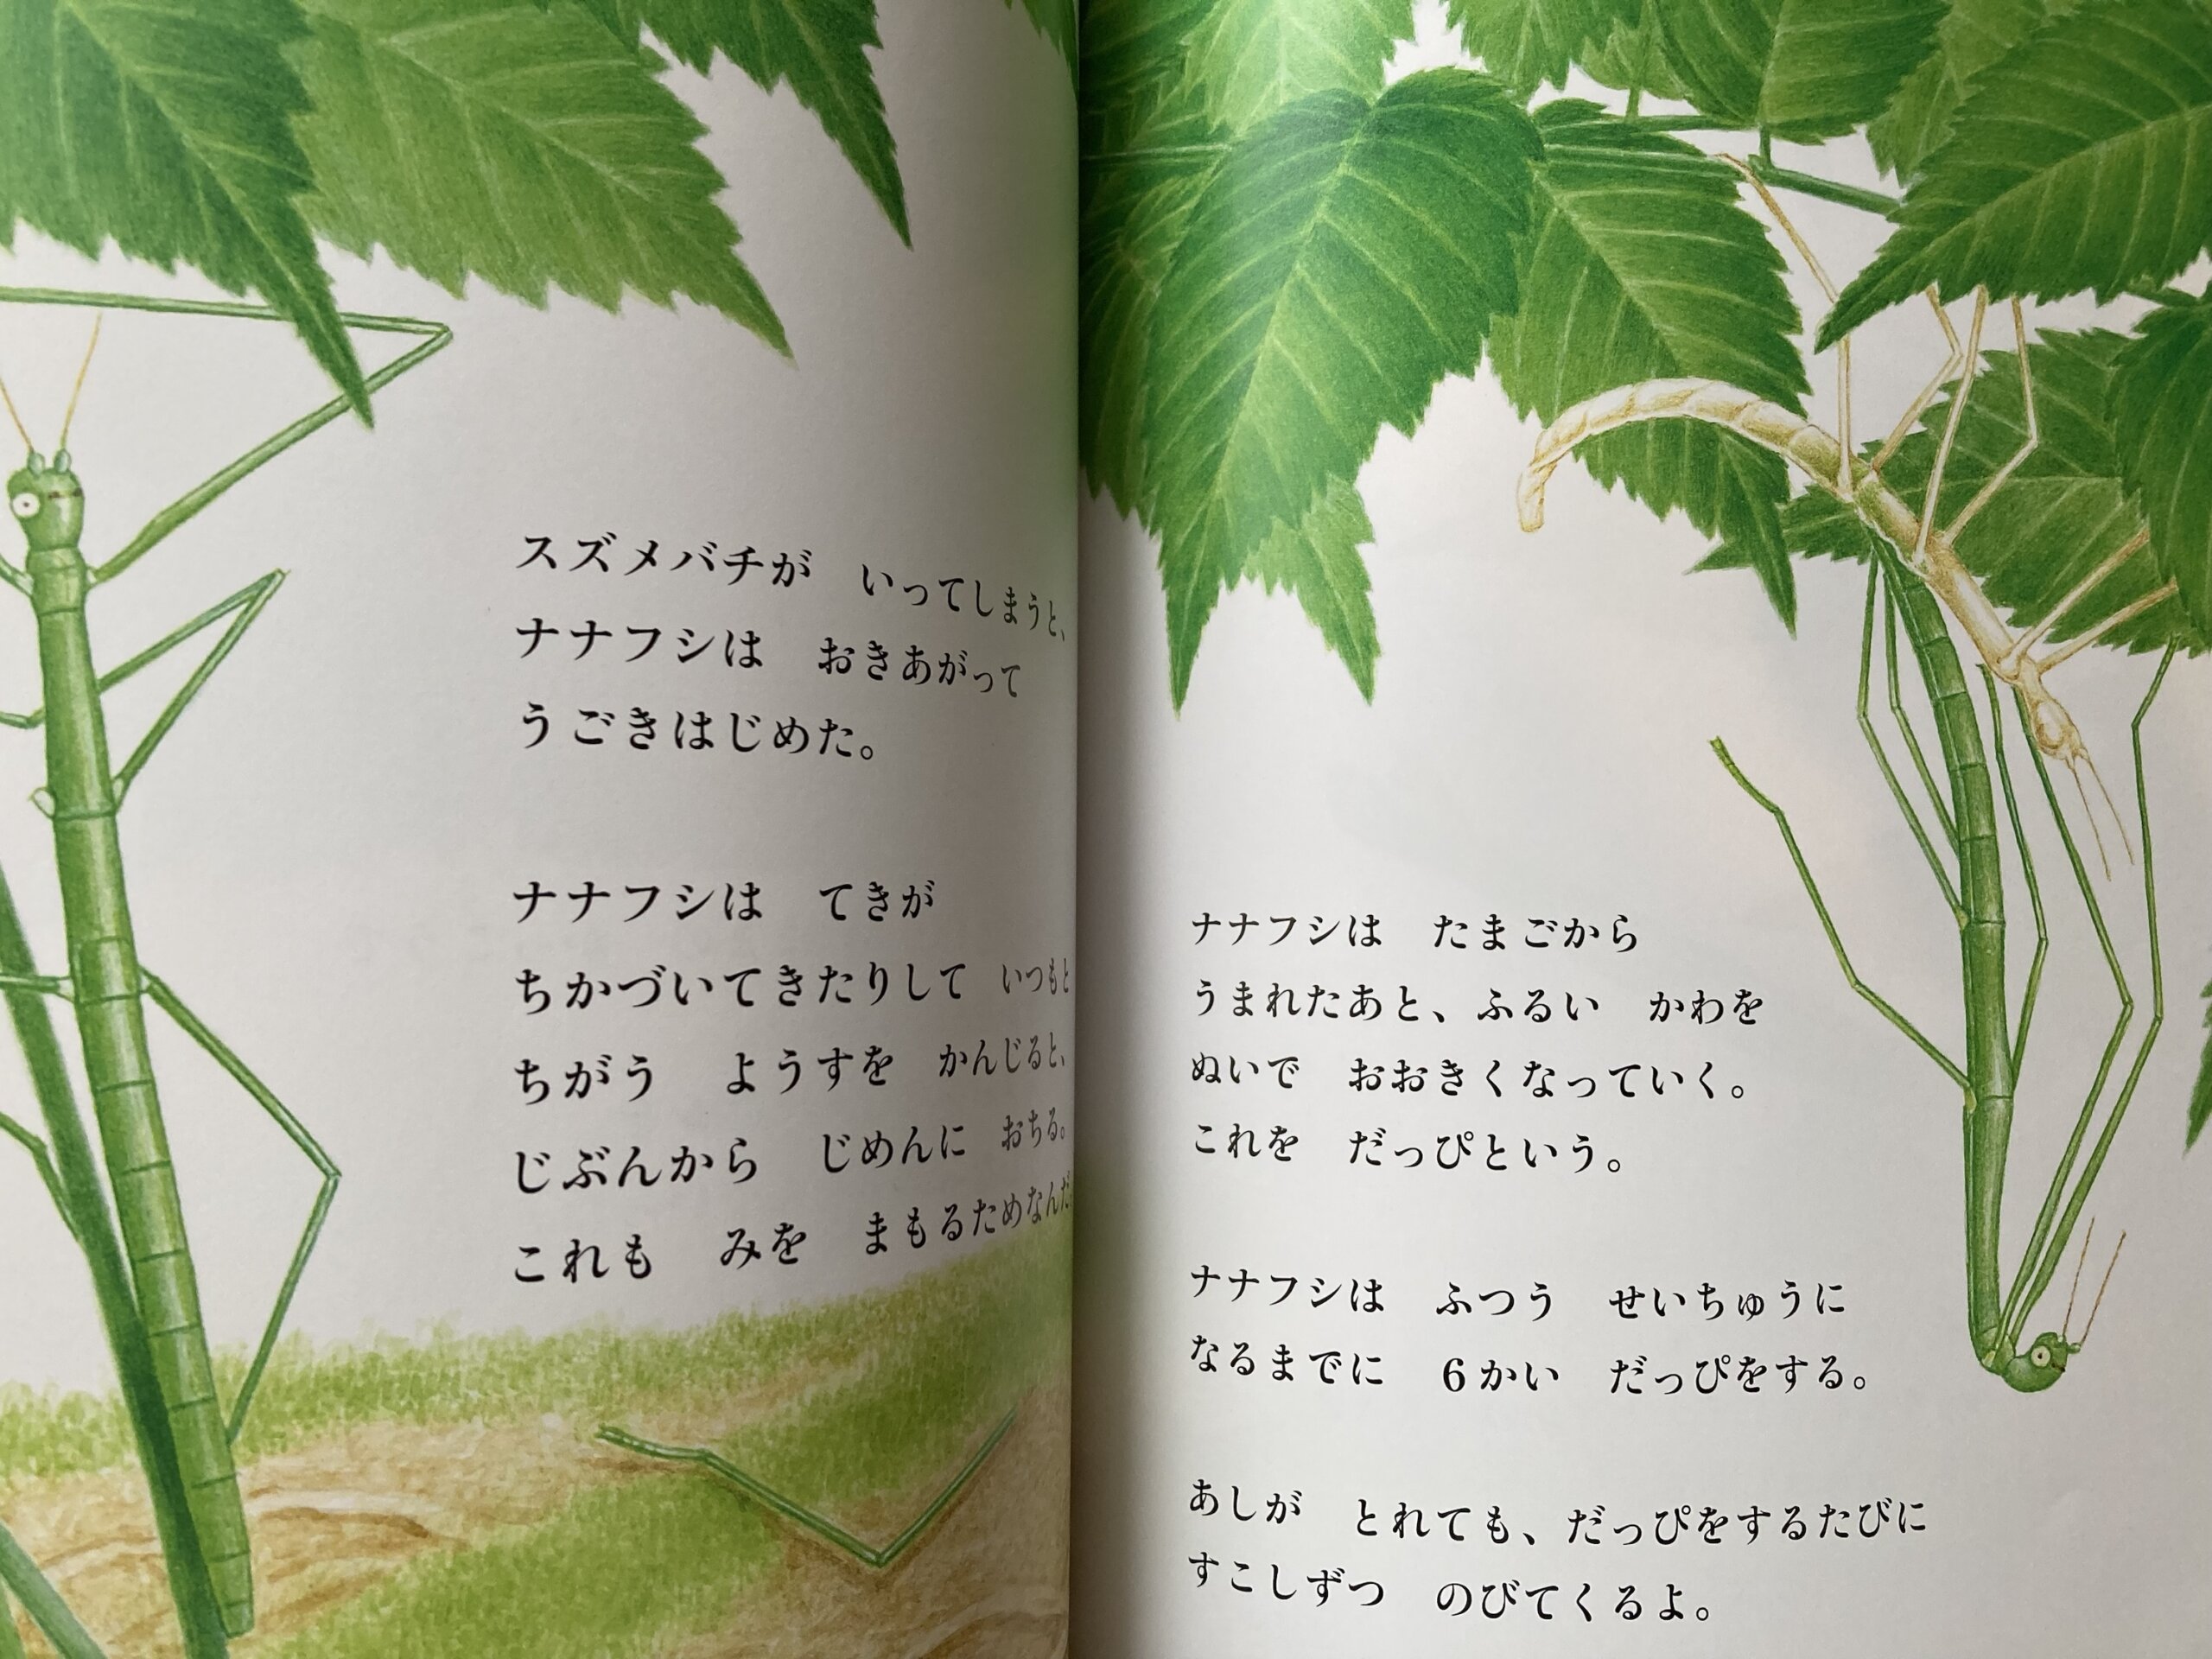 スズメバチが　いってしまうと、
ナナフシは　おきあがって
うごきはじめた。
ナナフシは　てきが
ちかづいてきたりして　いつもと
ちがう　ようすを　かんじると、
じぶんから　じめんに　おちる。
これも　みを　まもるためなんだ
ナナフシは　たまごから
うまれたあと、ふるい　かわを
ぬいで　おおきくなっていく。
これを　だっぴという。
ナナフシは　ふつう　せいちゅうに
なるまでに　6かい　だっぴをする。
あしが　とれても、だっぴをするたびに
すこしずつ　のびてくるよ。